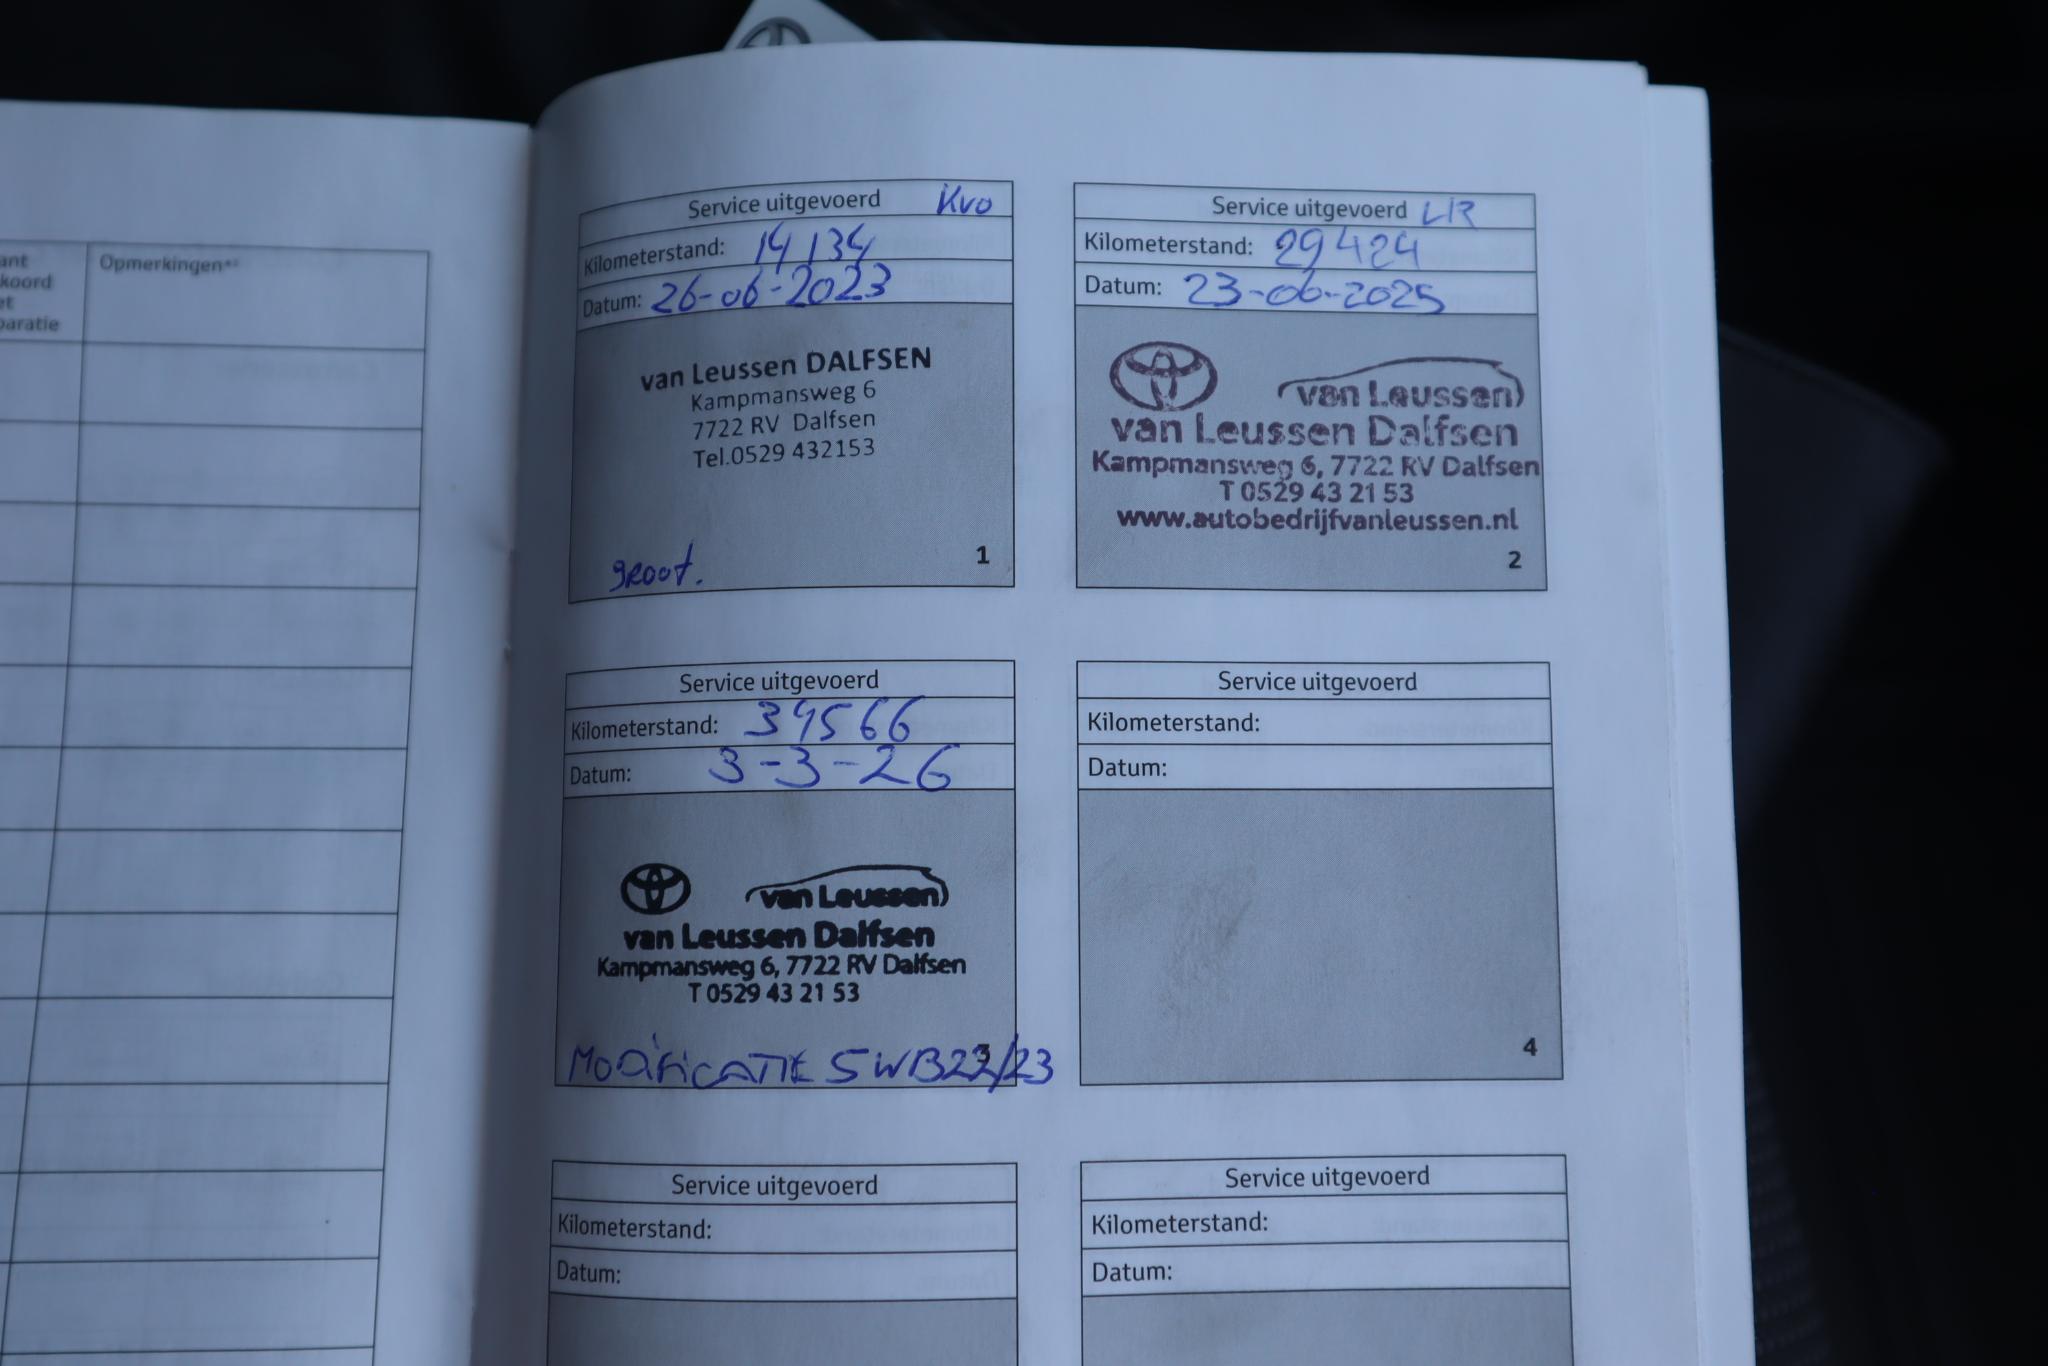 ant
koord
et
paratie
Opmerkingen*²
Service uitgevoerd Kvo
Kilometerstand: 14134
Datum: 26-06-2023
van Leussen DALFSEN
Kampmansweg 6
7722 RV Dalfsen
Tel.0529 432153
groot.
1
Service uitgevoerd LR
Kilometerstand: 29424
Datum: 23-06-2025
van Leussen
van Leussen Dalfsen
Kampmansweg 6, 7722 RV Dalfsen
T 0529 43 21 53
www.autobedrijfvanleussen.nl
2
Service uitgevoerd
Kilometerstand: 39566
Datum: 3-3-26
van Leussen
van Leussen Dalfsen
Kampmansweg 6, 7722 RV Dalfsen
T 0529 43 21 53
3
MODIFICATIE SWB22/23
Service uitgevoerd
Kilometerstand:
Datum:
4
Service uitgevoerd
Kilometerstand:
Datum:
Service uitgevoerd
Kilometerstand:
Datum: